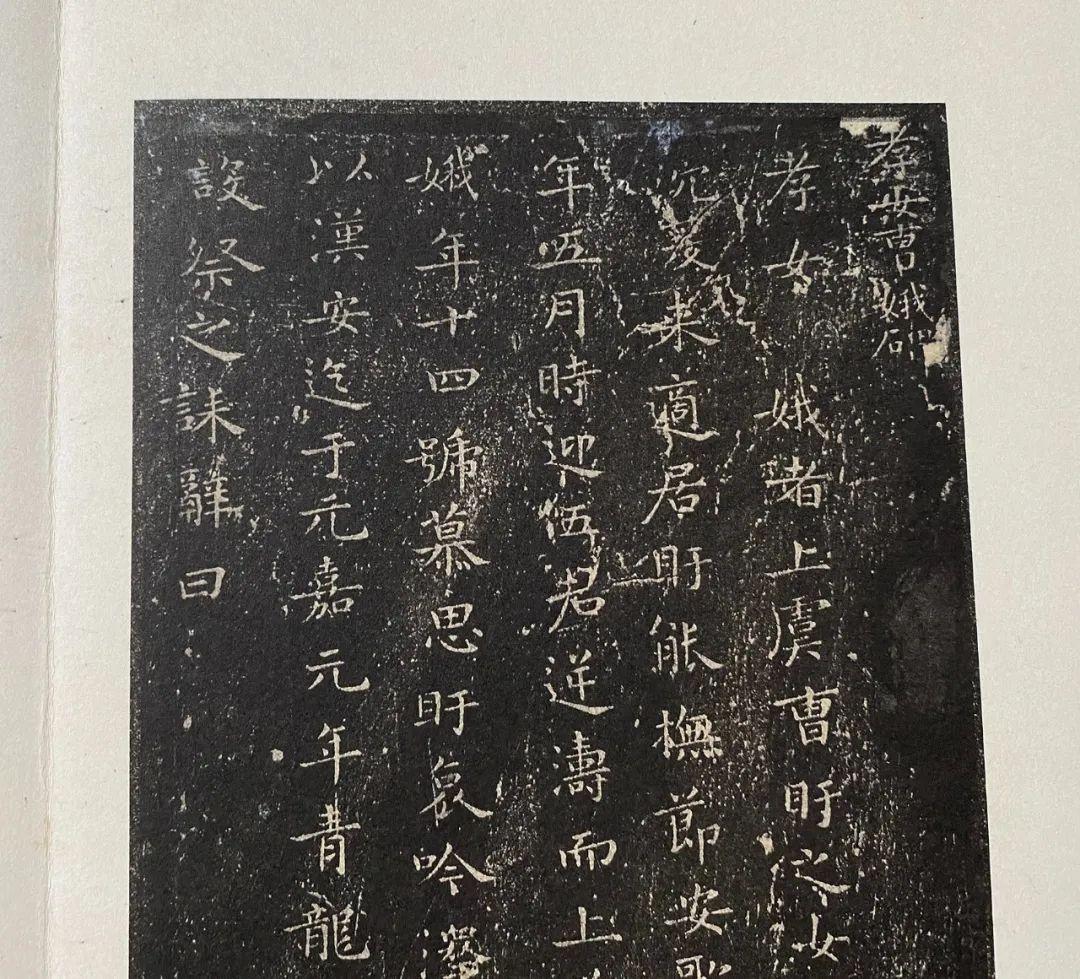 孝女曹娥碑
孝女曹娥者上虞曹盱之女
沉荒来適居盱能撫節安歌
年五月時迎伍君逆濤而上
娥年十四號慕思盱哀吟澤
以漢安迄于元嘉元年青龍
設祭之誄辭曰